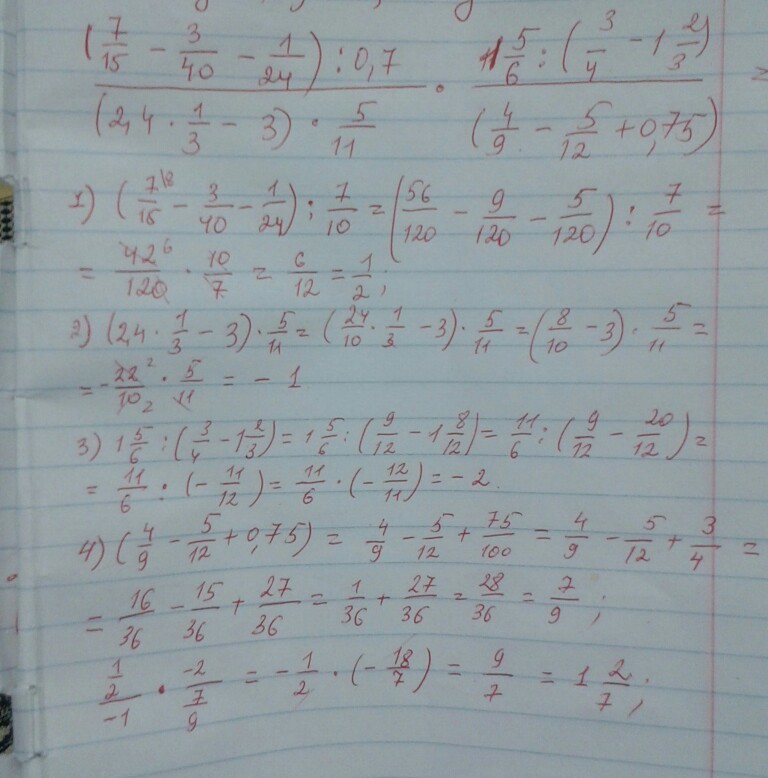 (7/15 − 3/40 − 1/24) : 0,7 / (2,4 · 1/3 − 3) · 5/11 · 1 5/6 : (3/4 − 1 2/3) / (4/9 − 5/12 + 0,75) =
1) (7\8/15 − 3/40 − 1/24) : 7/10 = (56/120 − 9/120 − 5/120) : 7/10 =
= 42 6/120 · 10/7 = 6/12 = 1/2;
2) (2,4 · 1/3 − 3) · 5/11 = (24/10 · 1/3 − 3) · 5/11 = (8/10 − 3) · 5/11 =
= −22 2/10 2 · 5/11 = − 1
3) 1 5/6 : (3/4 − 1 2/3) = 1 5/6 : (9/12 − 1 8/12) = 11/6 : (9/12 − 20/12) =
= 11/6 : (− 11/12) = 11/6 · (− 12/11) = − 2.
4) (4/9 − 5/12 + 0,75) = 4/9 − 5/12 + 75/100 = 4/9 − 5/12 + 3/4 =
= 16/36 − 15/36 + 27/36 = 1/36 + 27/36 = 28/36 = 7/9;
1/2/−1 · −2/7/9 = − 1/2 · (− 18/7) = 9/7 = 1 2/7;